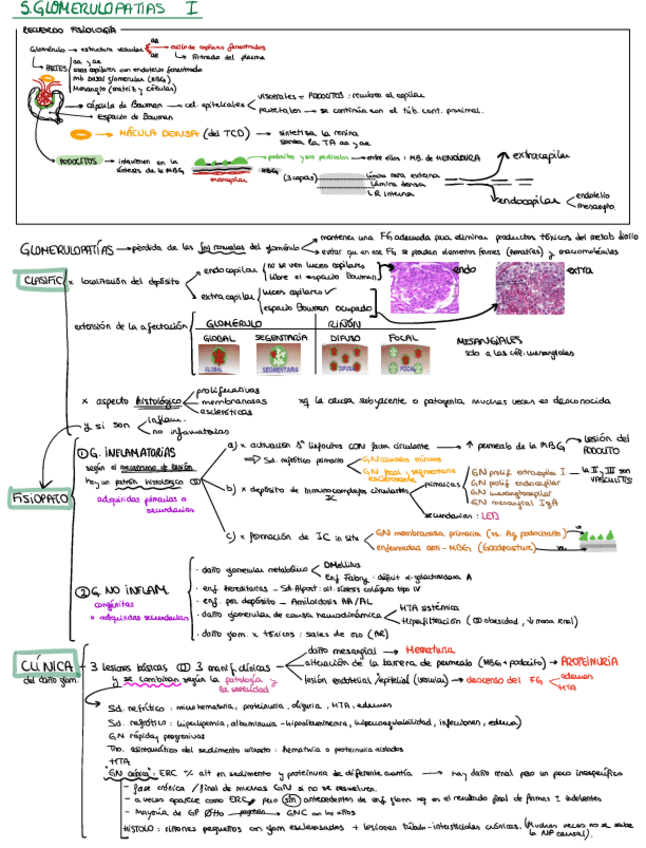 5. GLOMERULOPATÍAS I
RECUERDO FISIOLOGÍA
Glomérulo → estructura vascular
aa
ae
ovillo de capilares fenestrados
↳ Filtrado del plasma
PARTES
aa y ae
asas capilares con endotelio fenestrado
mb basal glomerular (MBG)
Mesangio (matriz y células)
cápsula de Bowman → cel. epiteliales
viscerales = PODOCITOS: recubren al capilar
parietales → se continúa con el túb. cont. proximal.
Espacio de Bowman
MÁCULA DENSA (del TCD) → sintetiza la renina
sensa la TA aa y ae
PODOCITOS → intervienen en la síntesis de la MBG
podocito y sus pedicelos → entre ellos: MB. de HENDIDURA
MBG
endocapilar
(3 capas)
lámina rara externa
lámina densa
LR interna
extracapilar
endocapilar
endotelio
mesangio
GLOMERULOPATÍAS → pérdida de las funciones normales del glomérulo
mantener una FG adecuada para eliminar productos tóxicos del metab diario
evitar que en ese FG se pierdan elementos formes (hematíes) y macromoléculas
CLASIFIC
x localización del depósito
endocapilar
no se ven luces capilares
libre el espacio Bowman
extracapilar
luces capilares ✓
espacio Bowman ocupado
endo
extra
extensión de la afectación
GLOMÉRULO
RIÑÓN
GLOBAL
SEGMENTARIA
DIFUSO
FOCAL
GLOBAL
SEGMENTARIA
DIFUSA
FOCAL
MESANGIALES
solo a las cél. mesangiales
x aspecto histológico
proliferativas
membranosas
escleróticas
xq la causa subyacente o patogenia muchas veces es desconocida
y si son
inflam.
no inflamatorias
FISIOPATO
① G. INFLAMATORIAS
según el mecanismo de lesión
hay un patrón histológico
adquiridas primarias o secundarias
a) x activación
CON factor circulante → ↑ permeab de la MBG
Lesión del PODOCITO
Sd. nefrótico primario
GN cambios mínimos
GN focal y segmentaria esclerosante
b) x depósito de inmunocomplejos circulantes IC
primarias
GN prolif extracapilar I
la II y III son VASCULITIS
GN prolif endocapilar
GN mesangiocapilar
GN mesangial IgA
secundarias: LES
c) x formación de IC in situ
GN membranosa primaria (vs. Ag podocitario)
enfermedad anti-MBG (Goodpasture)
② G. NO INFLAM.
congénitas
o adquiridas secundarias
· daño glomerular metabólico
DMellitus
Enf Fabry: déficit α-galactosidasa A
· enf. hereditarias – Sd. Alport: alt. síntesis colágeno tipo IV
· enf. por depósito – Amiloidosis AA/AL
· daño glomerular de causa hemodinámica
HTA sistémica
Hiperfiltración (obesidad, ↓ masa renal)
· daño glom. x tóxicos: sales de oro (AR)
CLÍNICA
del daño glom.
3 lesiones básicas
3 manif. clínicas
y se combinan según la patología y la severidad
daño mesangial → Hematuria
alteración de la barrera de permeab (MBG + podocito) → PROTEINURIA
lesión endotelial/epitelial (vascular) → descenso del FG
edemas
HTA
Sd. nefrítico: microhematuria, proteinuria, oliguria, HTA, edemas
Sd. nefrótico: hiperlipemia, albuminuria - hipoalbuminemia, hipercoagulabilidad, infecciones, edema)
GN rápida/ progresivas
Tno. asintomático del sedimento urinario: hematuria o proteinuria aislados
HTA
"GN crónica": ERC
alt en sedimento y proteinuria de diferente cuantía → hay daño renal pero un poco inespecífico
- fase crónica / final de muchas GN si no se resuelven.
- a veces aparece como ERC pero sin antecedentes de enf glom xq es el resultado final de formas indolentes
- mayoría de GP
GNC con los años
HISTOLO: riñones pequeños con glom esclerosados + lesiones túbulo-intersticiales crónicas. (Muchas veces no se sabe la NP causal).